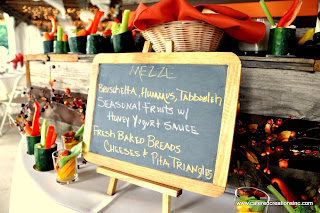 MEZZE
Bruschetta, Hummus, Tabbouleh
Seasonal Fruits w/
Honey Yogurt Sauce
Fresh Baked Breads
Cheeses & Pita Triangles
www.cateredcreationsinc.com